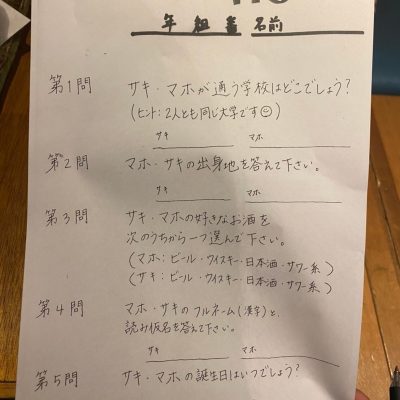 年 組 番 名前
第1問 サキ・マホが通う学校はどこでしょう?
(ヒント:2人とも同じ大学です☺)
サキ マホ
第2問 マホ・サキの出身地を答えて下さい。
サキ マホ
第3問 サキ・マホの好きなお酒を
次のうちから一つ選んで下さい。
(マホ:ビール・ウイスキー・日本酒・サワー系)
(サキ:ビール・ウイスキー・日本酒・サワー系)
第4問 マホ・サキのフルネーム(漢字)と、
読み仮名を答えて下さい。
サキ マホ
第5問 サキ・マホの誕生日はいつでしょう?